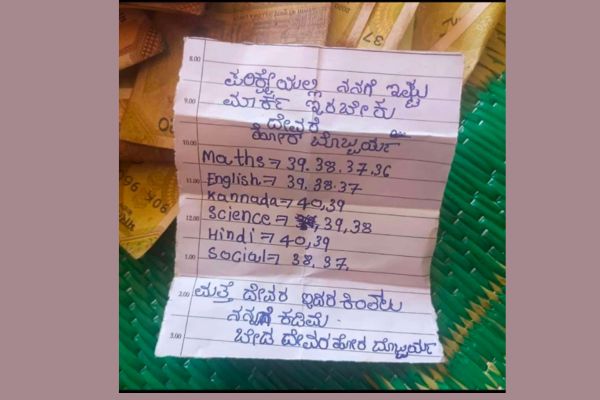 8.00
ಪರಿಕ್ಷೇಯಲ್ಲಿ ನನಗೆ ಇಷ್ಟು
9.00
ಮಾರ್ಕ ಇರಬೇಕು
ದೇವರೆ
10.00
ಹೋರ ಬೊಬ್ಬರ್ಯ
Maths = 39.38.37.36
11.00
English = 39.38.37
Kannada = 40,39
12.00
Science = 39,38
Hindi = 40,39
1.00
Social = 38,37.
2.00
ಮತ್ತೆ ದೇವರ ಇದರ ಕಿಂತಲು
ನನಗೆ ಕಡಿಮೆ
3.00
ಬೇಡ ದೇವರಹೋರ ಬೊಬ್ಬರ್ಯ
37